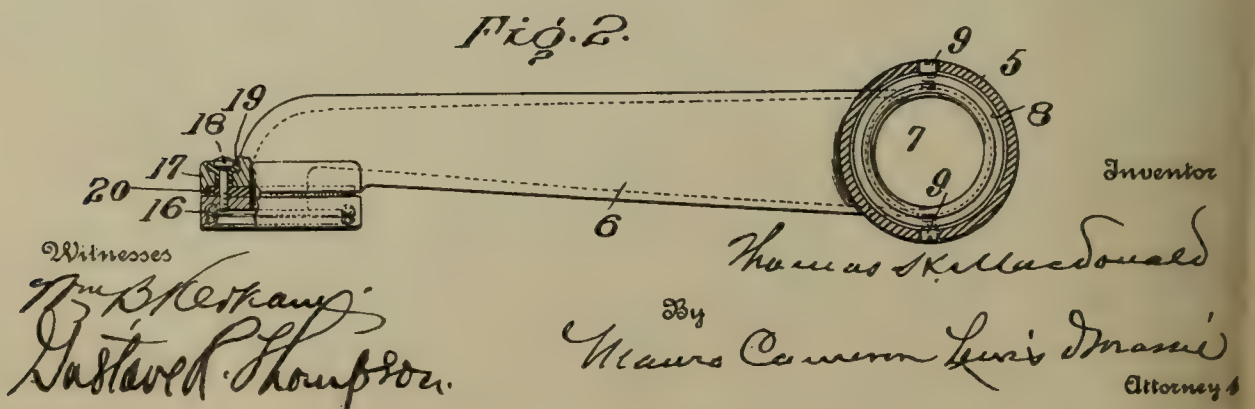 Fig. 2.
9
5
8
7
19
18
17
20
16
9
6
Inventor
Thomas S. K. MacDonald
Witnesses
Wm B
Gustave R. Thompson.
By
Mauro Cameron Lewis & Massie
Attorneys